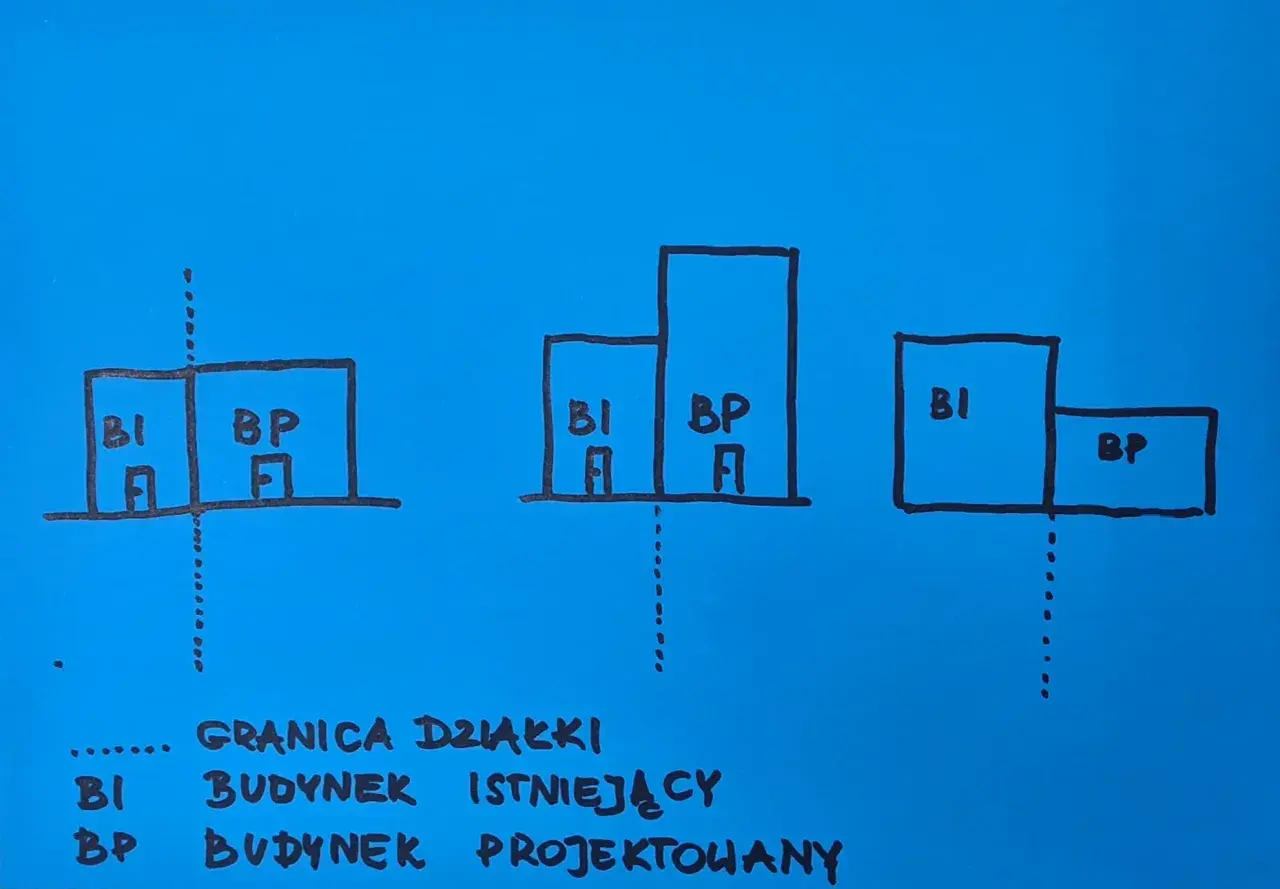 BI BP
BI BP
BI BP
....... GRANICA DZIAŁKI
BI BUDYNEK ISTNIEJĄCY
BP BUDYNEK PROJEKTOWANY